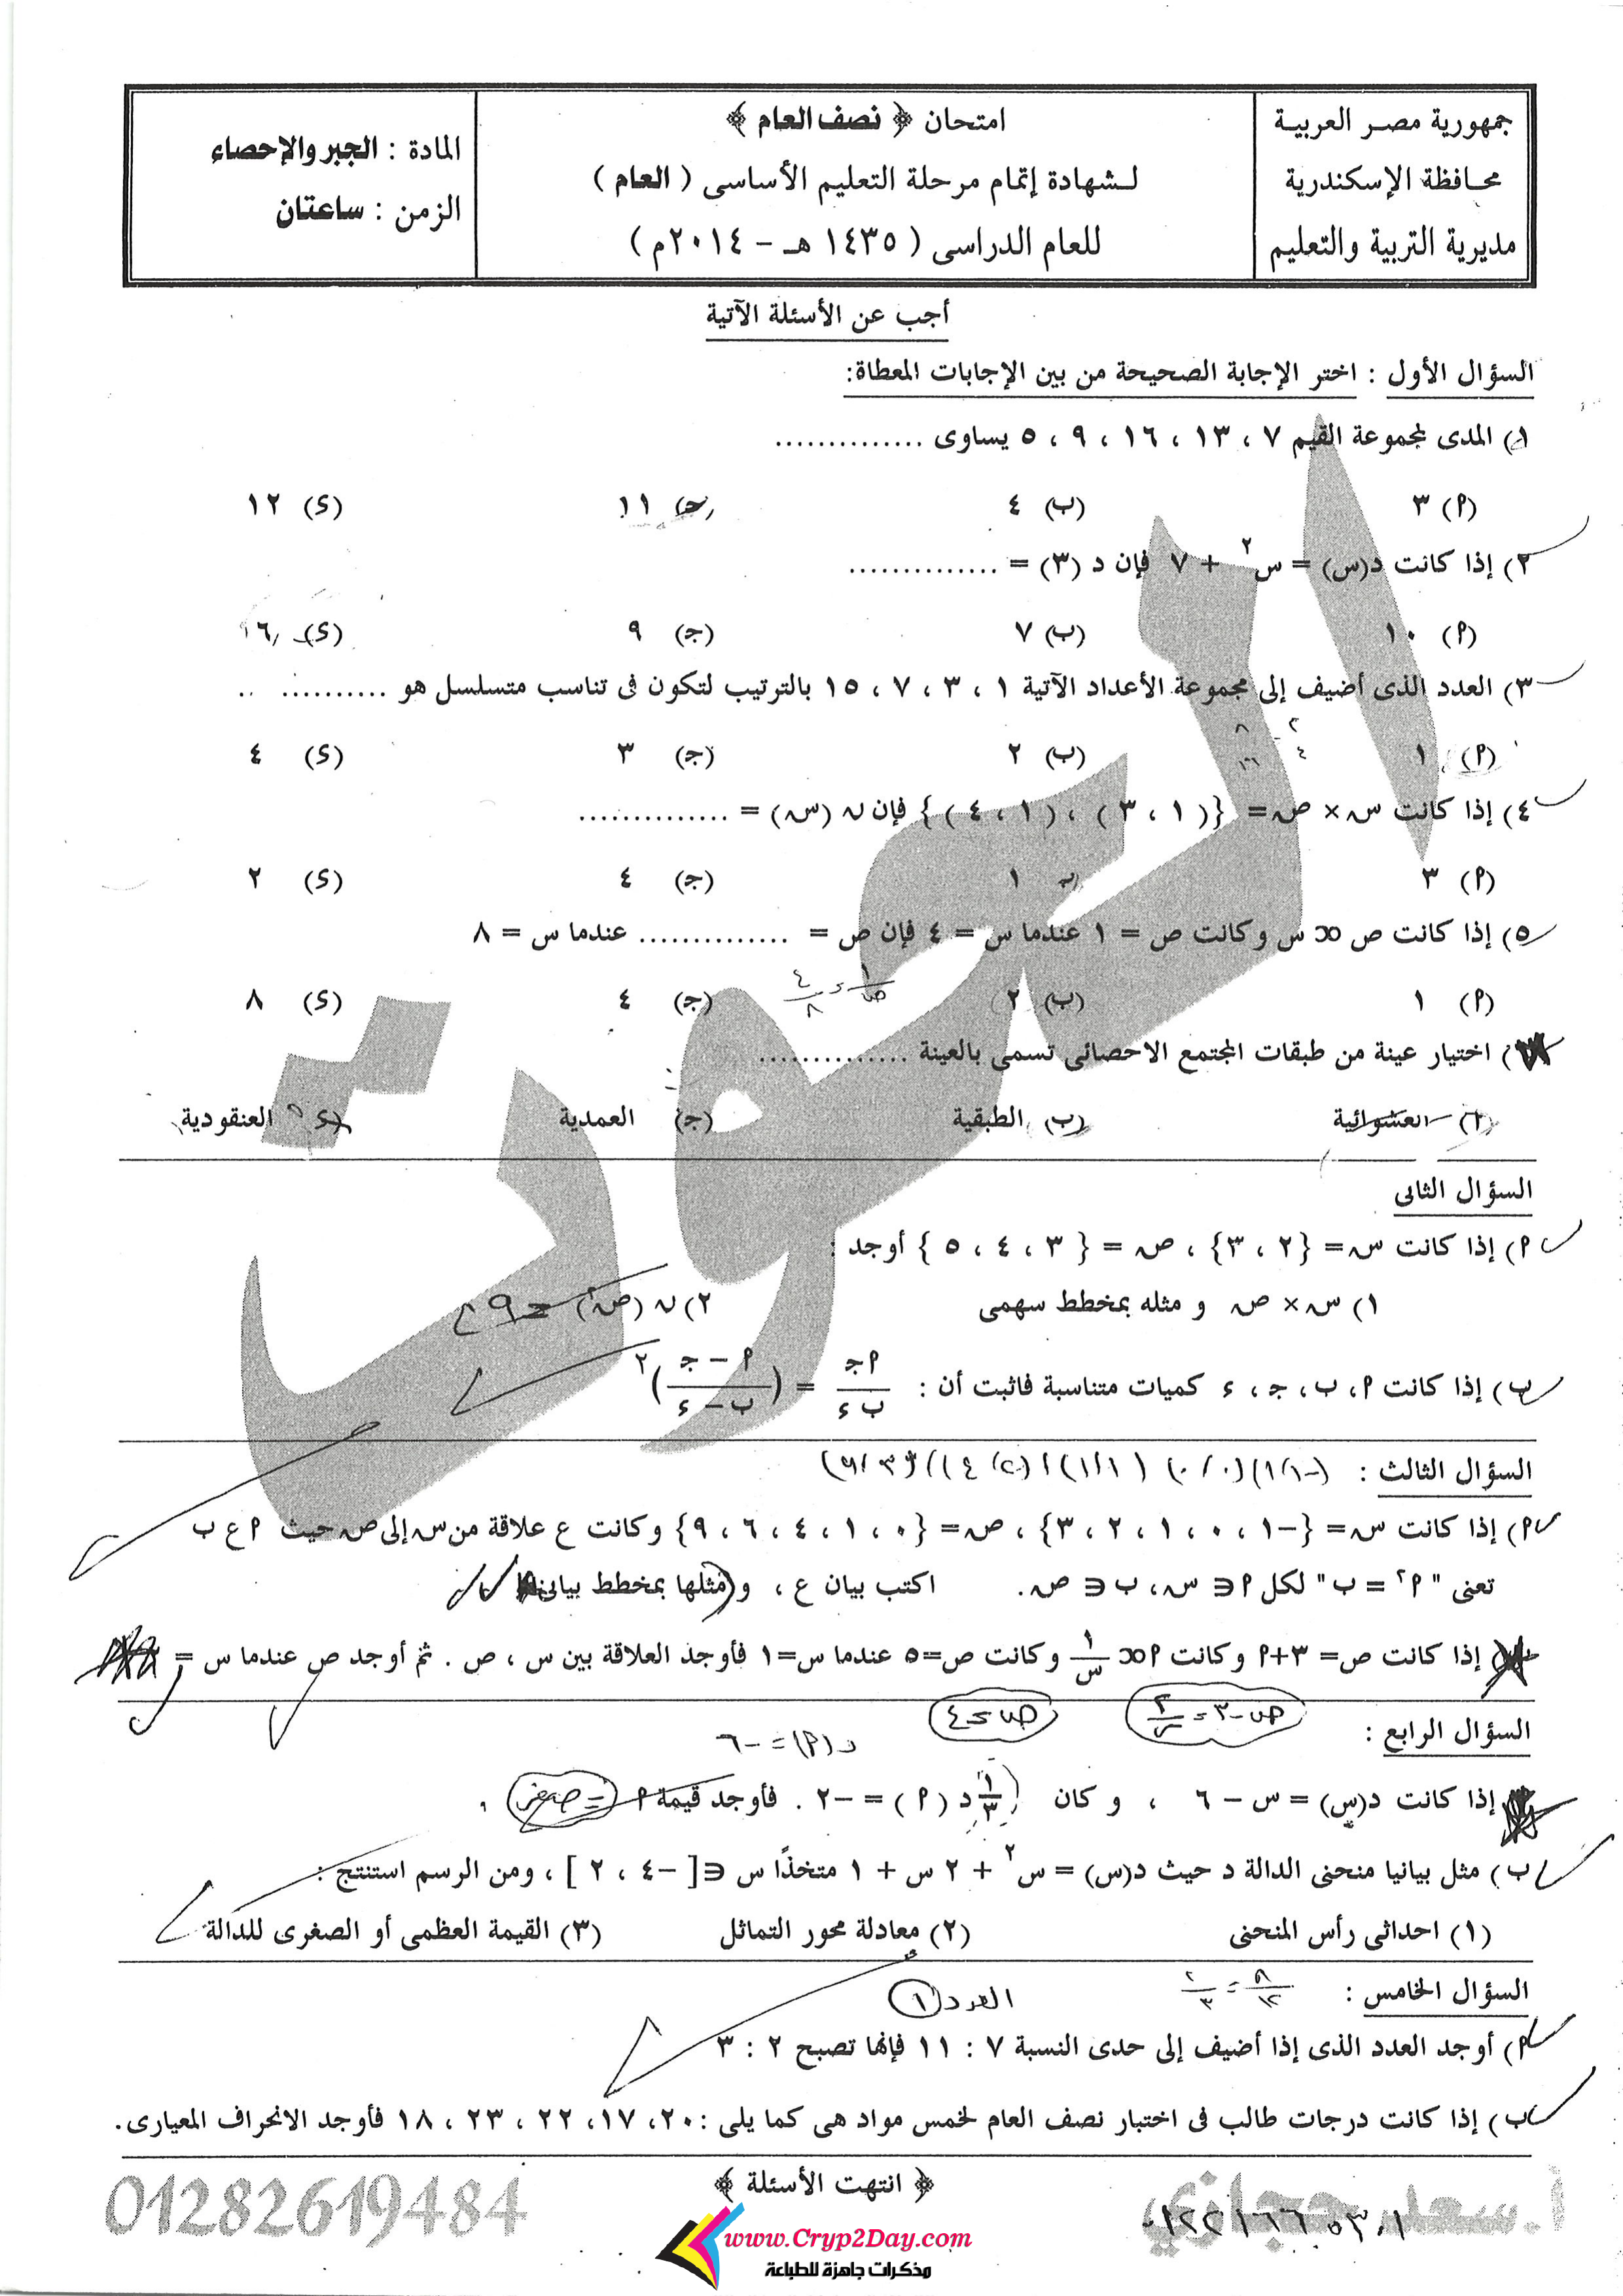 جمهورية مصر العربية
محافظة الإسكندرية
مديرية التربية والتعليم
امتحان ﴿ نصف العام ﴾
لشهادة إتمام مرحلة التعليم الأساسى ( العام )
للعام الدراسى ( ١٤٣٥ هـ - ٢٠١٤م )
المادة : الجبر والإحصاء
الزمن : ساعتان
أجب عن الأسئلة الآتية
السؤال الأول : اختر الإجابة الصحيحة من بين الإجابات المعطاة:
١) المدى لمجموعة القيم ٧ ، ١٣ ، ١٦ ، ٩ ، ٥ يساوى ..............
(٩) ٣ (ب) ٤ (جـ) ١١ (٤) ١٢
٢) إذا كانت د(س) = س٢ + ٧ فإن د (٣) = ..............
(٩) ١٠ (ب) ٧ (جـ) ٩ (٤) ١٦
٣) العدد الذى أضيف إلى مجموعة الأعداد الآتية ١ ، ٣ ، ٧ ، ١٥ بالترتيب لتكون فى تناسب متسلسل هو ..........
(٩) ١ (ب) ٢ (جـ) ٣ (٤) ٤
٤) إذا كانت س × ص = {(١ ، ٣) ، (١ ، ٤)} فإن ن (س) = ..............
(٩) ٣ ب ١ (جـ) ٤ (٤) ٢
٥) إذا كانت ص ∝ س وكانت ص = ١ عندما س = ٤ فإن ص = .............. عندما س = ٨
(٩) ١ (ب) ٢ (جـ) ٤ (٤) ٨
) اختيار عينة من طبقات المجتمع الاحصائى تسمى بالعينة ..............
(٩) العشوائية (ب) الطبقية (جـ) العمدية (٤) العنقودية
السؤال الثانى
٩) إذا كانت س = {٢ ، ٣} ، ص = {٣ ، ٤ ، ٥} أوجد :
١) س × ص و مثله بمخطط سهمى ٢) ن (ص٢) = ٩
ب) إذا كانت ٩ ، ب ، جـ ، ء كميات متناسبة فاثبت أن : ٩جـ / ب ء = (٩ - جـ / ب - ء)٢
السؤال الثالث : (-١/١)(٠/٠)(١/١)(٢/٤)(٣/٩)
٩) إذا كانت س = {-١ ، ٠ ، ١ ، ٢ ، ٣} ، ص = {٠ ، ١ ، ٤ ، ٦ ، ٩} وكانت ع علاقة من س إلى ص حيث ٩ ع ب
تعنى " ٩٢ = ب " لكل ٩ ∈ س ، ب ∈ ص. اكتب بيان ع ، و مثلها بمخطط بيانى
) إذا كانت ص= ٣+٩ وكانت ٩ ∝ ١/س وكانت ص=٥ عندما س=١ فأوجد العلاقة بين س ، ص . ثم أوجد ص عندما س =
ص-٣ = ٢/س ص = ٤
السؤال الرابع :
د(٩) = -٦
إذا كانت د(س) = س - ٦ ، و كان ١/٣ د (٩) = -٢ . فأوجد قيمة ٩ = صفر
ب) مثل بيانيا منحنى الدالة د حيث د(س) = س٢ + ٢ س + ١ متخذًا س ∈ [-٤ ، ٢] ، ومن الرسم استنتج :
(١) احداثى رأس المنحنى (٢) معادلة محور التماثل (٣) القيمة العظمى أو الصغرى للدالة
السؤال الخامس : ٨/١٢ = ٢/٣ العدد ١
٩) أوجد العدد الذى إذا أضيف إلى حدى النسبة ٧ : ١١ فإنها تصبح ٢ : ٣
ب) إذا كانت درجات طالب فى اختبار نصف العام لخمس مواد هى كما يلى : ٢٠، ١٧، ٢٢ ، ٢٣ ، ١٨ فأوجد الانحراف المعيارى.
﴿ انتهت الأسئلة ﴾
01282619484
أ.سعد حجازي
www.Cryp2Day.com
مذكرات جاهزة للطباعة